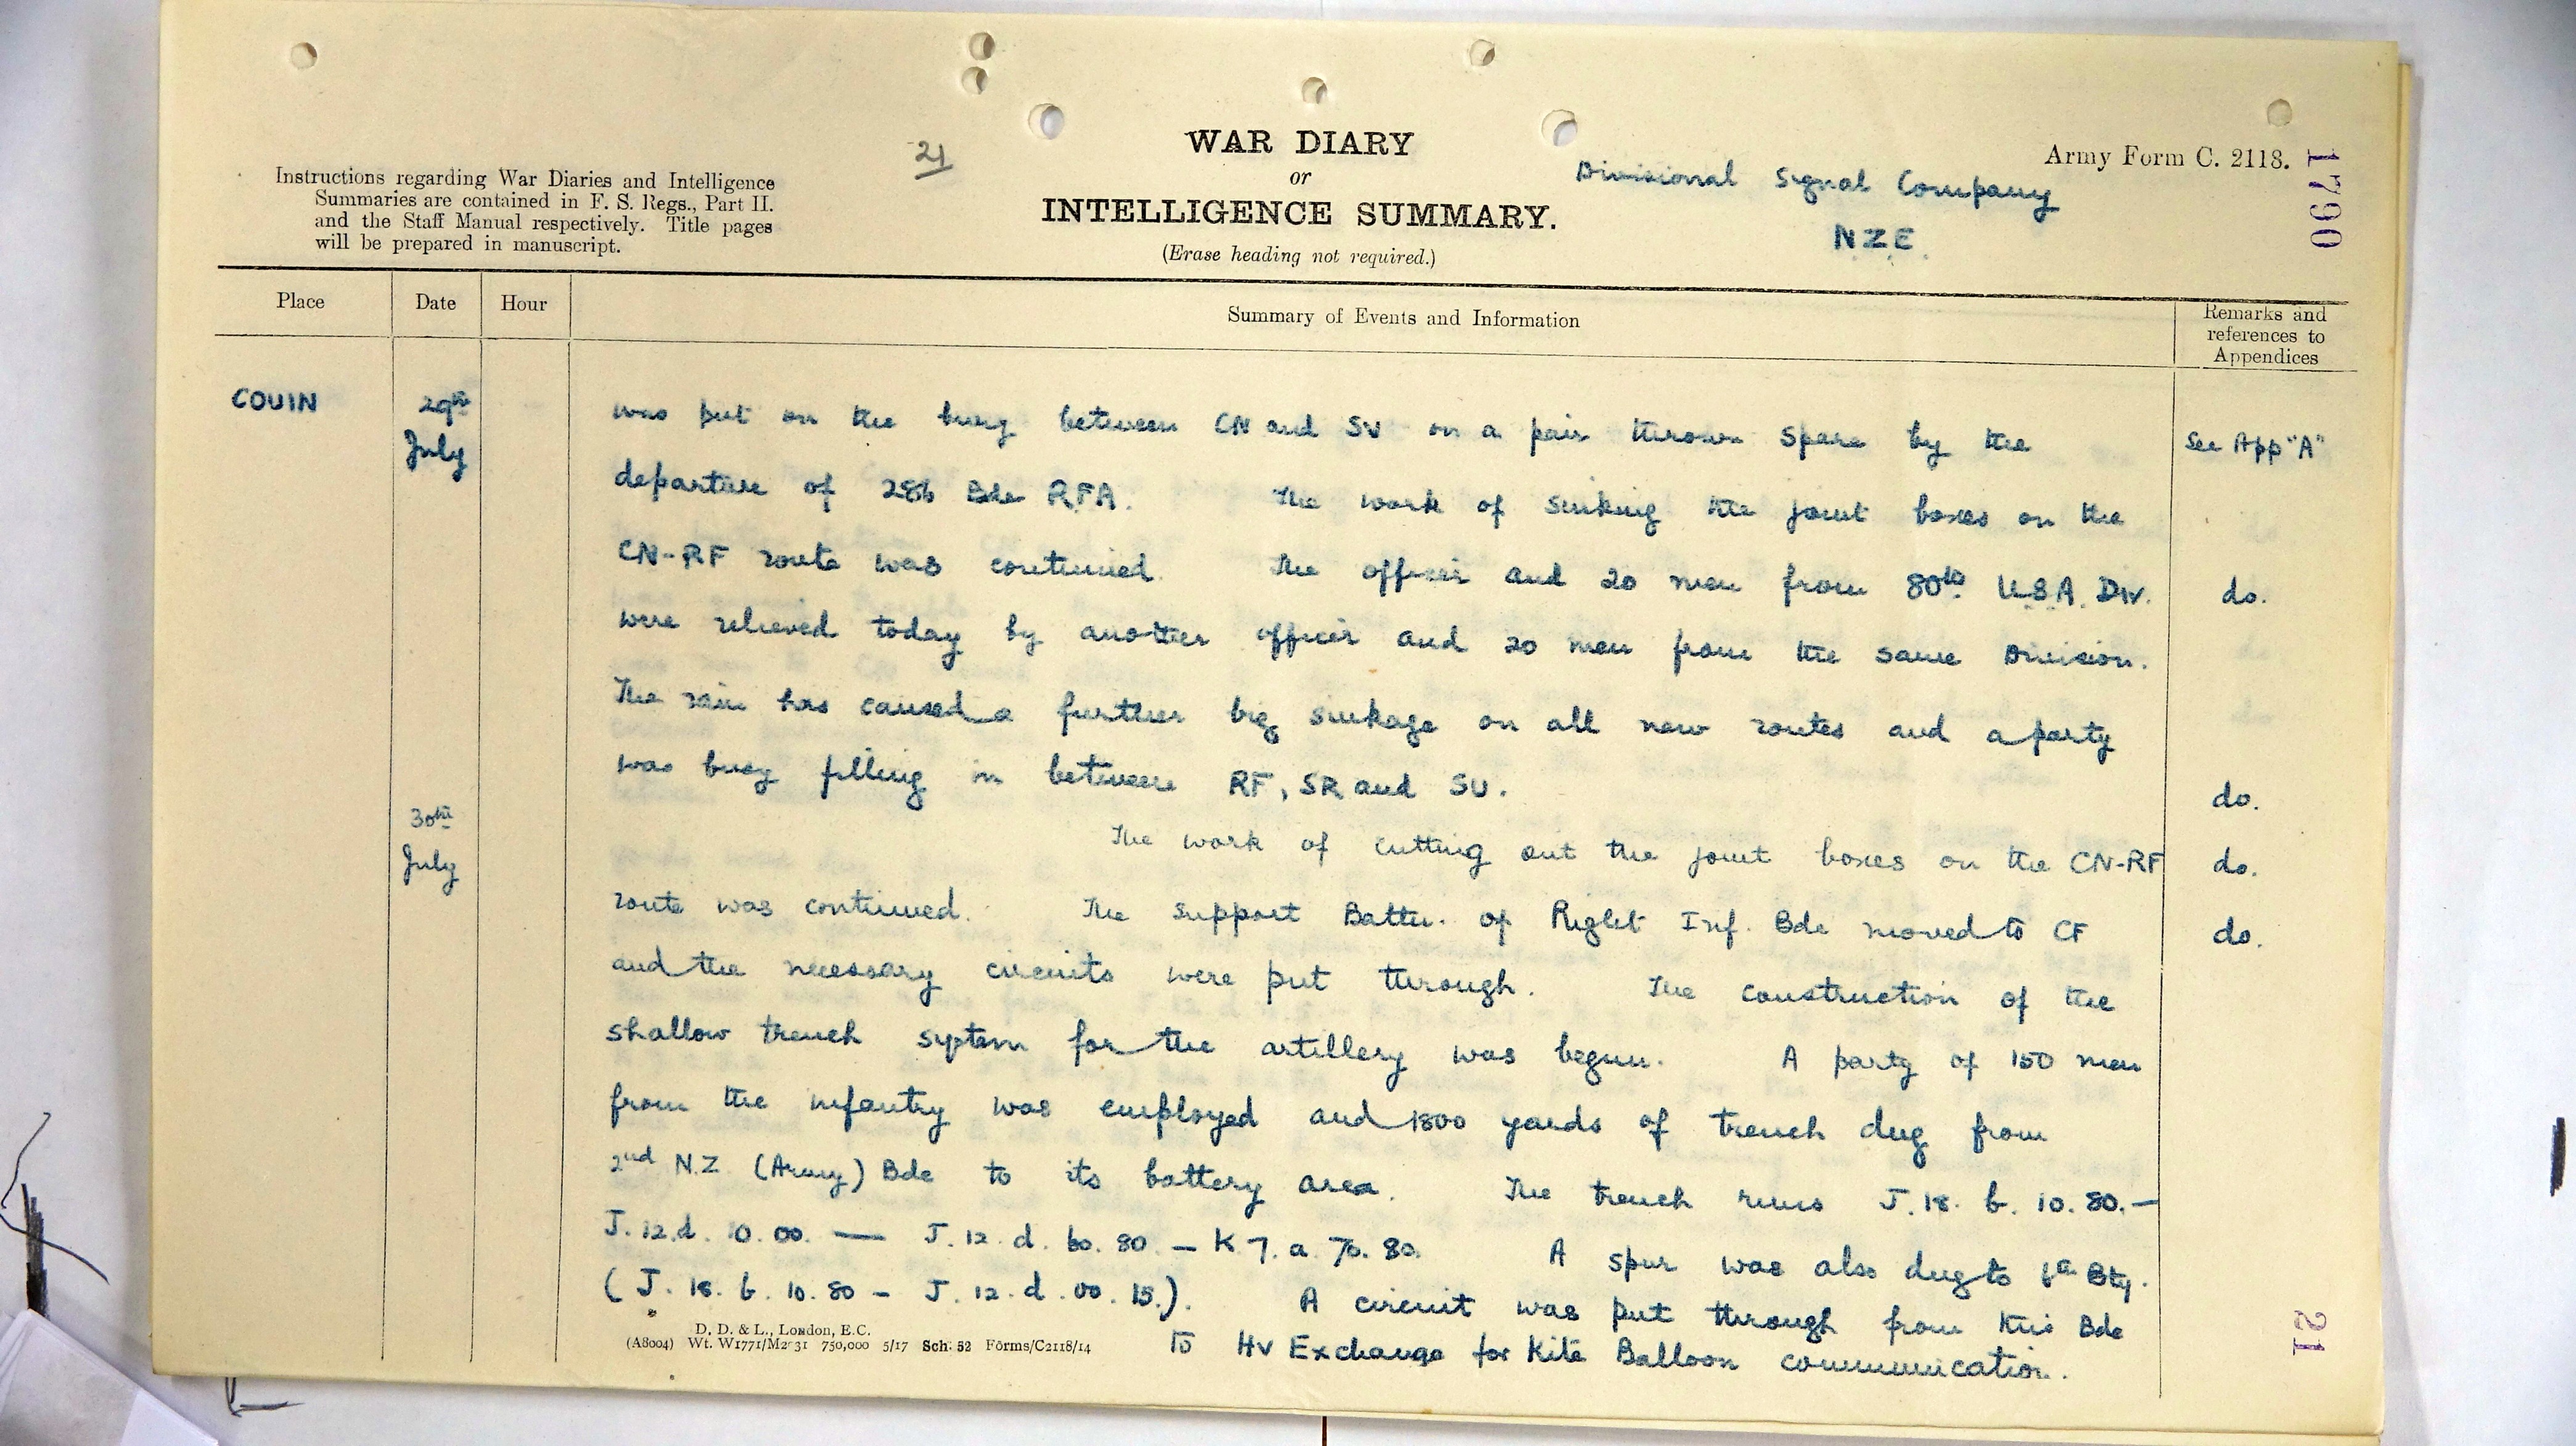 21
WAR DIARY
or
INTELLIGENCE SUMMARY.
(Erase heading not required.)
Instructions regarding War Diaries and Intelligence
Summaries are contained in F. S. Regs., Part II.
and the Staff Manual respectively. Title pages
will be prepared in manuscript.
Divisional Signal Company
NZE
Army Form C. 2118.
1790
Place
Date
Hour
Summary of Events and Information
Remarks and
references to
Appendices
COUIN
29th
July
was put on the bury between CN and SV on a pair thrown spare by the
See App "A"
departure of 286 Bde RFA. The work of sinking the joint boxes on the
CN-RF route was continued. The officer and 20 men from 80th U.S.A. Div.
do.
were relieved today by another officer and 20 men from the same Division.
The rain has caused a further big sinkage on all new routes and a party
was busy filling in between RF, SR and SU.
do.
30th
July
The work of cutting out the joint boxes on the CN-RF
do.
route was continued. The Support Battn. of Right Inf. Bde moved to CF
do.
and the necessary circuits were put through. The construction of the
shallow trench system for the artillery was begun. A party of 150 men
from the infantry was employed and 1800 yards of trench dug from
2nd N.Z. (Army) Bde to its battery area. The trench runs J.18. b. 10. 80.—
J.12.d. 10. 00. — J. 12. d. 60. 80. — K 7. a. 70. 80. A spur was also dug to Bty.
(J. 18. b. 10. 80 - J. 12. d. 00. 15.). A circuit was put through from this Bde
to HV Exchange for Kite Balloon communication.
D. D. & L., London, E.C.
(A8004) Wt. W1771/M2 31 750,000 5/17 Sch. 52 Forms/C2118/14
21